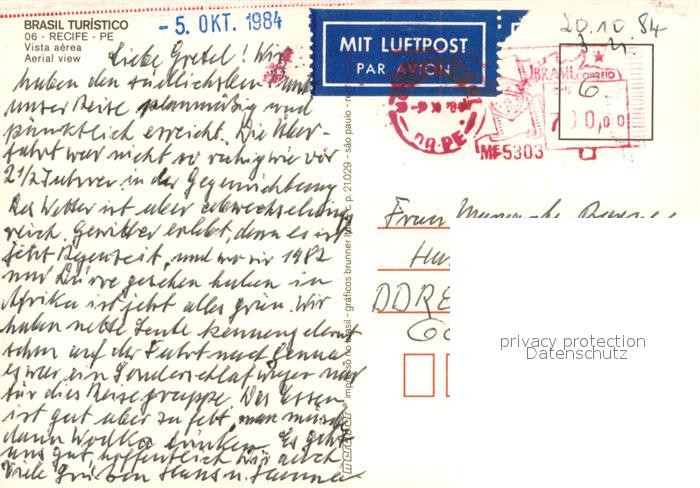 BRASIL TURÍSTICO
06 - RECIFE - PE
Vista aérea
Aerial view
- 5. OKT. 1984
MIT LUFTPOST
PAR AVION
20.10.84
BRASIL CORREIO
6
00,00
MF5303
DR-PE
Liebe Gretel! Wir
haben den südlichsten Punkt
unser Reise planmäßig und
pünktlich erreicht. Die Über-
fahrt war nicht so ruhig wie vor
2 1/2 Jahren in der Gegenrichtung
Das Wetter ist aber abwechslungs
reich. Gewitter erlebt, denn es ist
jetzt Regenzeit, und wo wir 1982
nur Dürre gesehen haben in
Afrika ist jetzt alles grün. Wir
haben nette Leute kennengelernt
schon auf der Fahrt nach Genua
es war ein Sonderschlafwagen nur
für die Reisegruppe. Das Essen
ist gut aber zu fett, man muss
dann Wodka trinken. Es geht
uns gut, hoffentlich Dir auch
Viele Grüße von Hans u. Hanna
impresso no brasil - gráficos brunner ltda. c. p. 21.029 - são paulo
Frau
DDR
privacy protection
Datenschutz